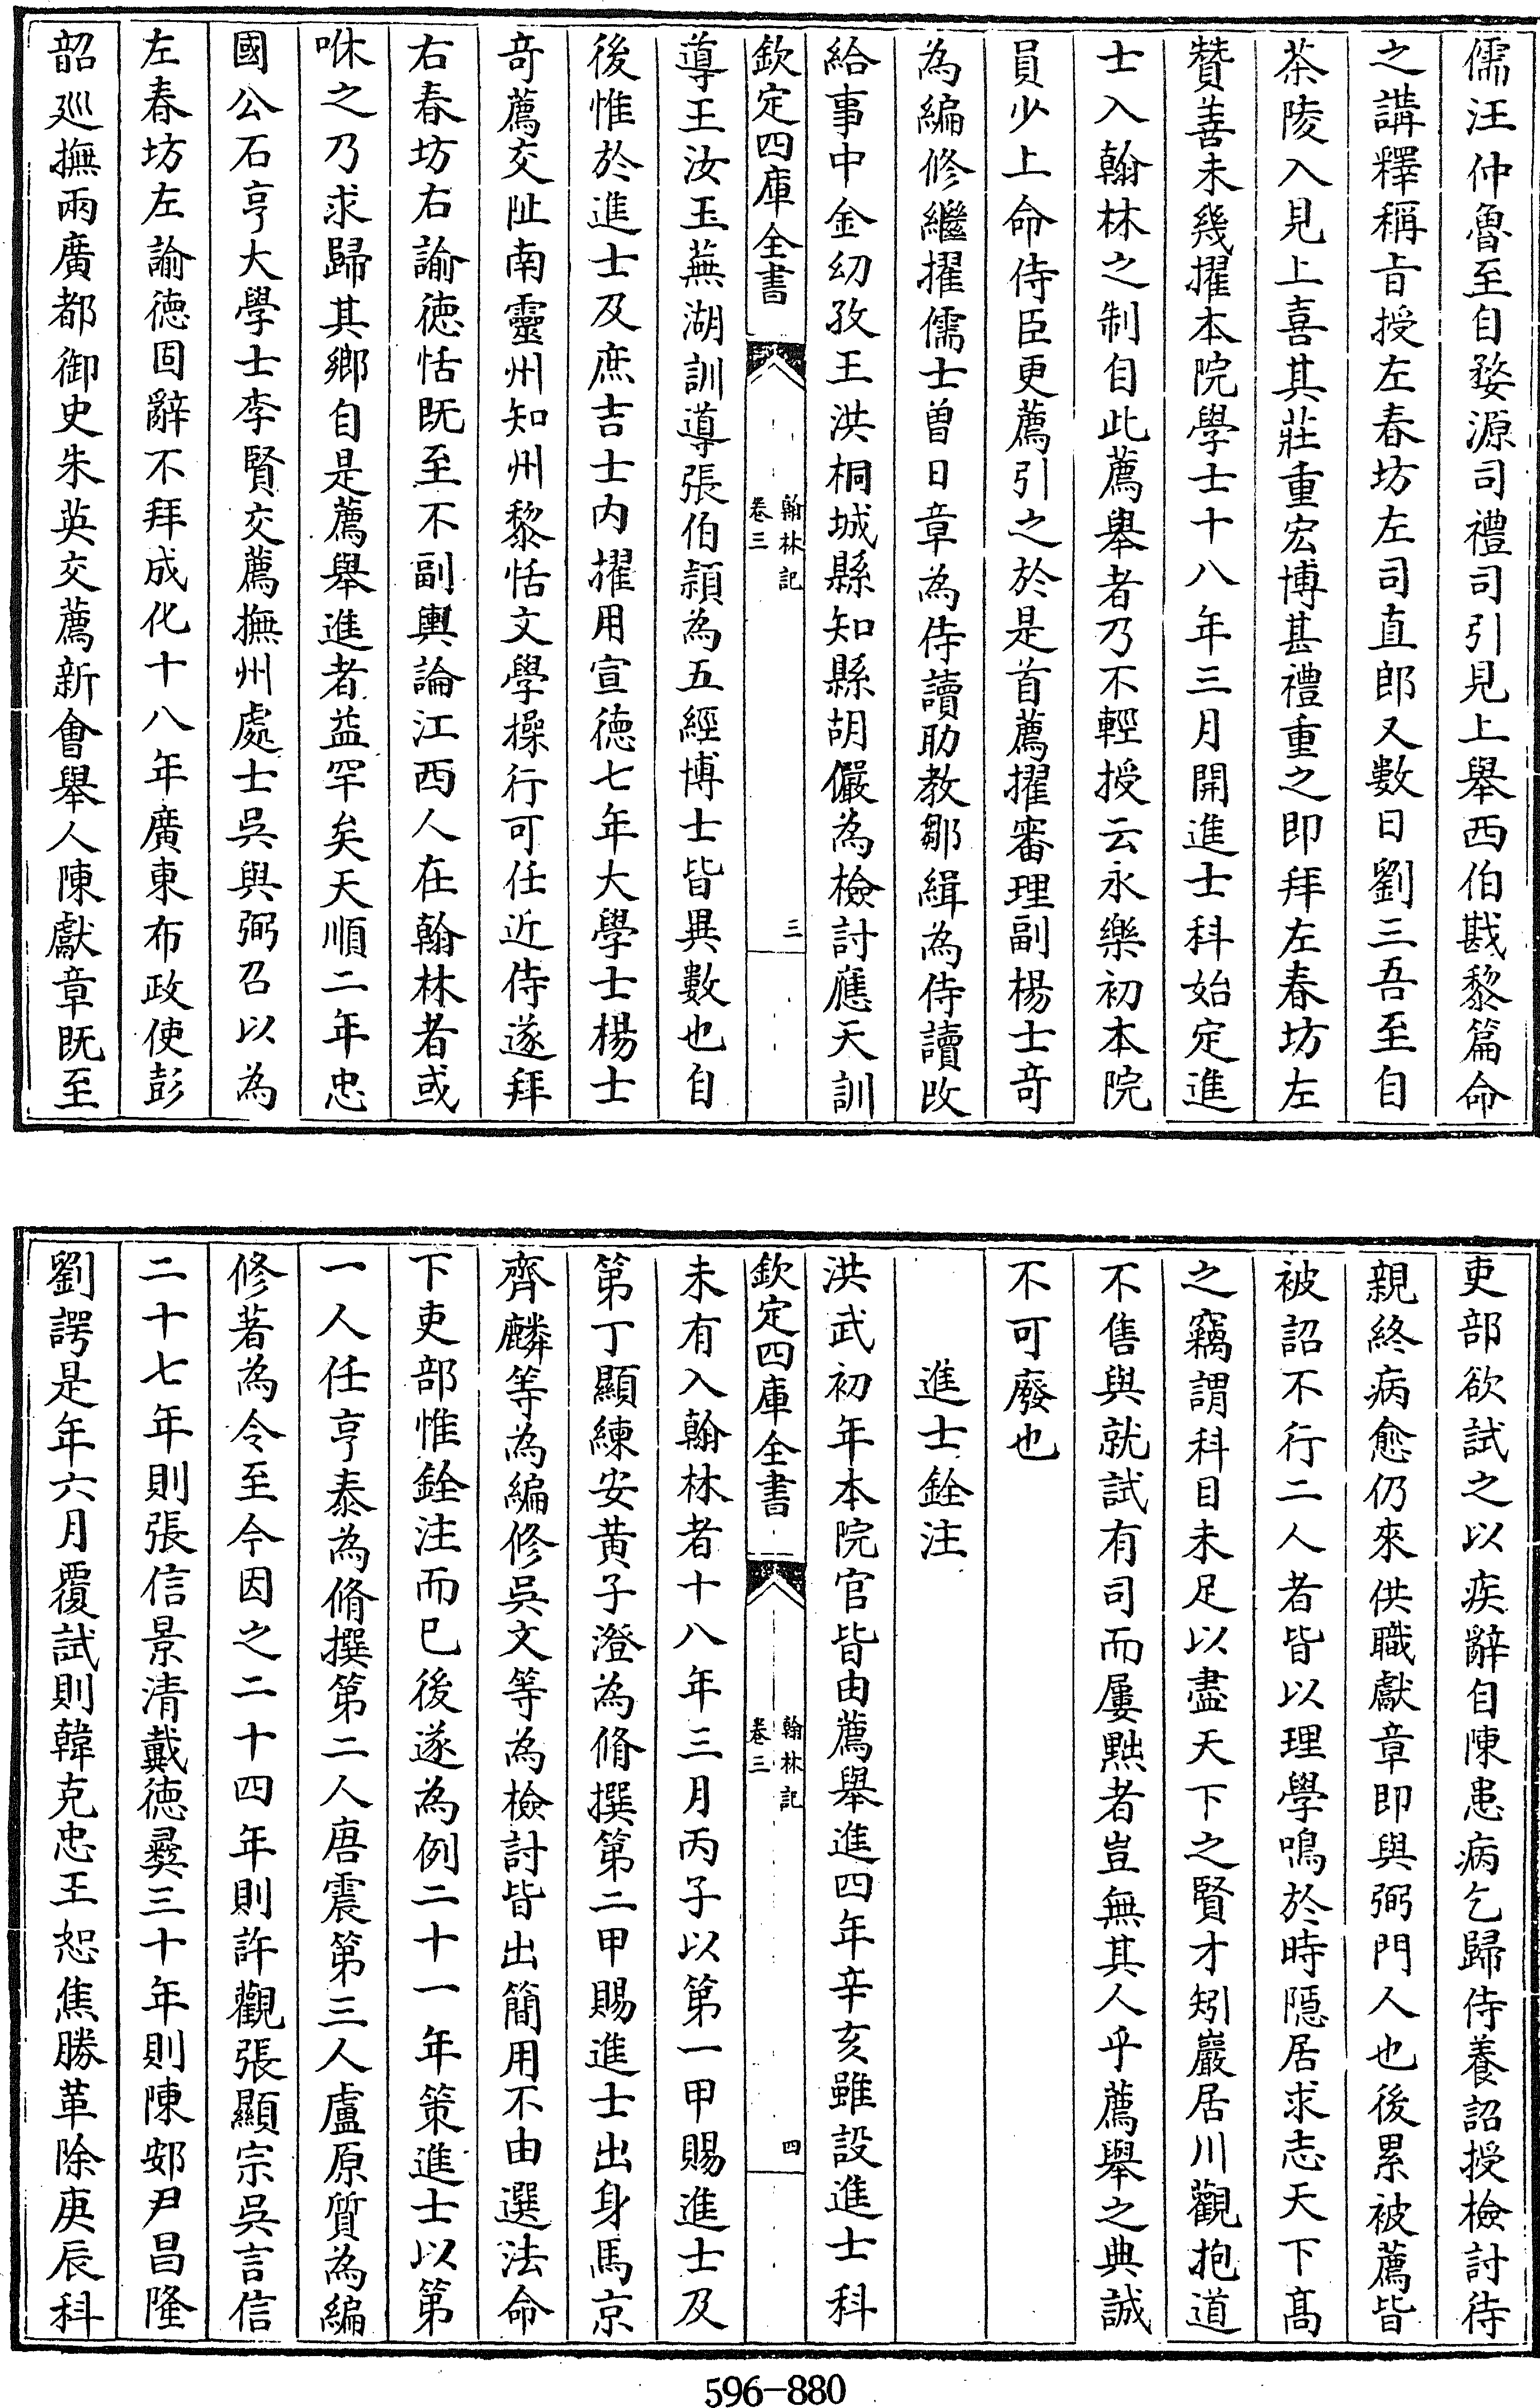 儒汪仲魯至自婺源司禮司引見上舉西伯戡黎篇命
之講釋稱㫖授左春坊左司直郎又數日劉三吾至自
茶陵入見上喜其莊重宏博甚禮重之即拜左春坊左
贊善未幾擢本院學士十八年三月開進士科始定進
士入翰林之制自此薦舉者乃不輕授云永樂初本院
員少上命侍臣更薦引之於是首薦擢審理副楊士竒
為編修繼擢儒士曽日章為侍讀助教鄒緝為侍讀改
給事中金幼孜王洪桐城縣知縣胡儼為檢討應天訓
欽定四庫全書
翰林記
卷三
三
導王汝玉蕪湖訓導張伯頴為五經博士皆異數也自
後惟於進士及庶吉士内擢用宣徳七年大學士楊士
竒薦交阯南靈州知州黎恬文學操行可任近侍遂拜
右春坊右諭徳恬既至不副輿論江西人在翰林者或
咻之乃求歸其鄉自是薦舉進者益罕矣天順二年忠
國公石亨大學士李賢交薦撫州處士吳與弼召以為
左春坊左諭徳固辭不拜成化十八年廣東布政使彭
韶廵撫兩廣都御史朱英交薦新會舉人陳獻章既至
吏部欲試之以疾辭自陳患病乞歸侍養詔授檢討待
親終病愈仍來供職獻章即與弼門人也後累被薦皆
被詔不行二人者皆以理學鳴於時隠居求志天下髙
之竊謂科目未足以盡天下之賢才矧巖居川觀抱道
不售與就試有司而屢黜者豈無其人乎薦舉之典誠
不可廢也
進士銓注
洪武初年本院官皆由薦舉進四年辛亥雖設進士科
欽定四庫全書
翰林記
卷三
四
未有入翰林者十八年三月丙子以第一甲賜進士及
第丁顯練安黄子澄為脩撰第二甲賜進士出身馬京
齊麟等為編修吳文等為檢討皆出簡用不由選法命
下吏部惟銓注而已後遂為例二十一年策進士以第
一人任亨泰為脩撰第二人唐震第三人盧原質為編
修著為令至今因之二十四年則許觀張顯宗吳言信
二十七年則張信景清戴徳彛三十年則陳䢿尹昌隆
劉諤是年六月覆試則韓克忠王恕焦勝革除庚辰科
596-880